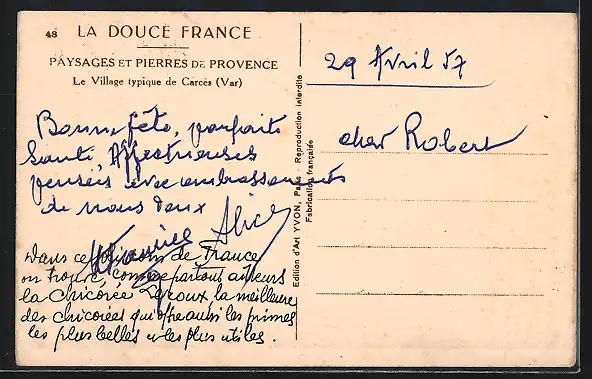 48 LA DOUCE FRANCE
PAYSAGES ET PIERRES DE PROVENCE
Le Village typique de Carcès (Var)
Bonne fête, parfaite
Santé, Affectueuses
pensées avec embrassements
de nous deux
Alice
Dans ce joli coin de France
on trouve, comme partout ailleurs
la Chicorée Leroux, la meilleure
des chicorées qui offre aussi les primes
les plus belles et les plus utiles.
Edition d'Art YVON, Paris - Reproduction interdite
Fabrication française
29 Avril 57
cher Robert